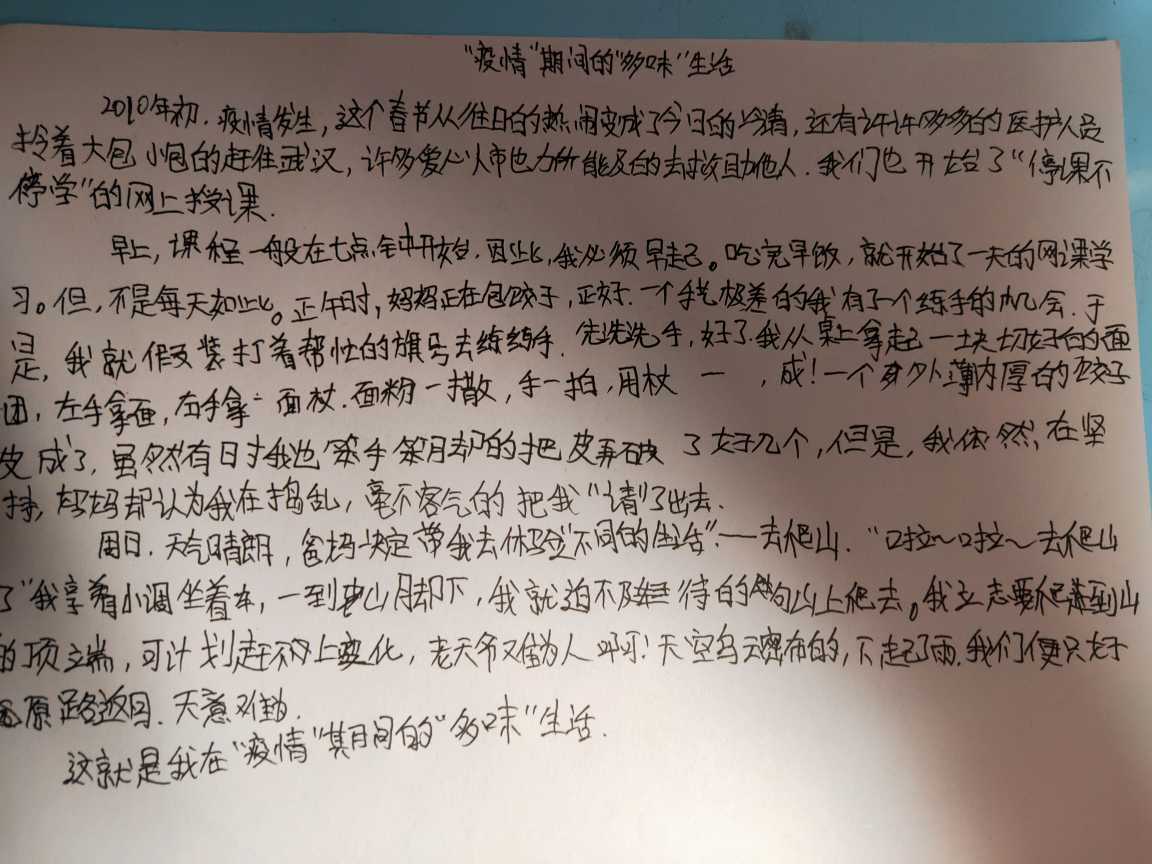 “疫情”期间的“多味”生活
2010年初.疫情发生,这个春节从往日的热闹变成了今日的冷清,还有许许多多的医护人员
拎着大包小包的赶往武汉,许多爱心人市也力所能及的去救助他人.我们也开始了“停课不
停学”的网上授课.
早上,课程一般在七点钟开始.因此,我必须早起。吃完早饭,就开始了一天的网课学
习。但,不是每天如此。正午时,妈妈正在包饺子,正好.一个手艺极差的我有了一个练手的机会.于
是,我就假装打着帮忙的旗号去练练手.先洗洗手,好了.我从桌上拿起一块切好的面
团,左手拿面,右手拿面杖.面粉一撒,手一拍,用杖一,成!一个外薄内厚的饺子
皮成了,虽然有时我也笨手笨脚的把皮弄破了好几个,但是,我依然在坚
持,妈妈却认为我在捣乱,毫不客气的把我“请”了出去.
周日.天气晴朗,爸妈决定带我去体验“不同的生活”.——去爬山.“啦~啦~去爬山
了”我享着小调坐着车,一到山脚下,我就迫不及待的向山上爬去。我立志要爬到山
的顶端,可计划赶不上变化,老天爷又 为人 呵!天空乌云密布的,下起了雨.我们便只好
原路返回.天意难 .
这就是我在“疫情”期间的“多味”生活.